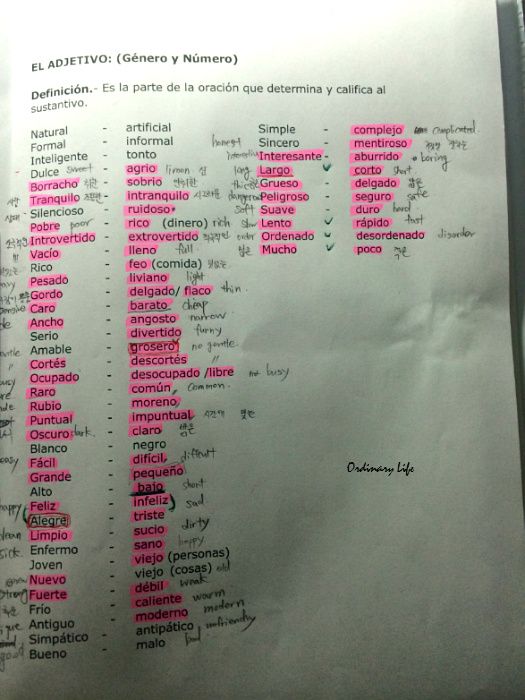 EL ADJETIVO: (Género y Número)
Definición.- Es la parte de la oración que determina y califica al
sustantivo.
Natural - artificial
Formal - informal
Inteligente - tonto
Dulce sweet - agrio limon
Borracho - sobrio
Tranquilo - intranquilo
Silencioso - ruidoso
Pobre poor - rico (dinero) rich
Introvertido - extrovertido
Vacío - lleno full
Rico - feo (comida)
Pesado - liviano light
Gordo - delgado/ flaco thin
Caro - barato cheap
Ancho - angosto narrow
Serio - divertido funny
Amable - grosero no gentle.
Cortés - descortés "
Ocupado - desocupado /libre not busy
Raro - común, common.
Rubio - moreno
Puntual - impuntual
Oscuro dark. - claro
Blanco - negro
easy Fácil - difícil difficult
Grande - pequeño
Alto - bajo short
happy Feliz - infeliz sad
Alegre - triste
Limpio - sucio dirty
sick. Enfermo - sano happy
Joven - viejo (personas)
Nuevo - viejo (cosas) old
strong Fuerte - débil weak
Frío - caliente warm
Antiguo - moderno modern
Simpático - antipático unfriendly
good Bueno - malo bad
Simple - complejo complicated.
honest Sincero - mentiroso
Interesante - aburrido boring
long Largo - corto short
Grueso - delgado
dangerous Peligroso - seguro safe
soft Suave - duro hard
slow Lento - rápido fast
order Ordenado - desordenado disorder
Mucho - poco
Ordinary Life